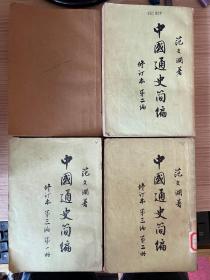 范文澜著
中國通史简编
修订本 第二编
范文澜著
中國通史简编
修订本 第三编 第一册
范文澜著
中國通史简编
修订本 第三编 第二册